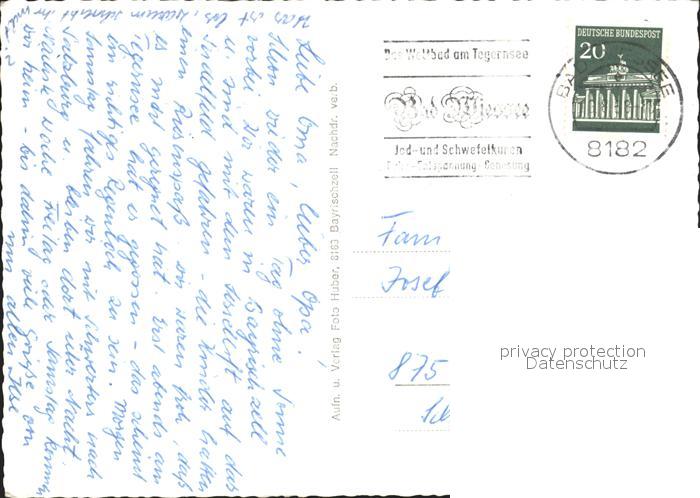 Was ist los, warum schreibt ihr nicht?
Liebe Oma, lieber Opa!
Schon wieder ein Tag ohne Sonne
vorbei. Wir waren in Bayrischzell
u. sind mit dem Sessellift auf das
Sudelfeld gefahren - die Kinder hatten
einen Riesenspaß. Wir waren froh, daß
es nicht geregnet hat. Erst abends am
Tegernsee hat es gegossen - das scheint
ein richtiges Regenloch zu sein. Morgen
Sonntag fahren wir mit nach
u. bleiben dort über Nacht.
Nächste Woche Freitag oder Samstag kommen
wir heim - bis dahin viele Grüße von
uns allen
Aufn. u. Verlag Foto Huber, 8163 Bayrischzell Nachdr. verb.
Das Weltbad am Tegernsee
Bad Wiessee
Jod- und Schwefelkuren
Ferien-Entspannung-Genesung
DEUTSCHE BUNDESPOST
20
BAD WIESSEE
8182
Fam
Josef
875
privacy protection
Datenschutz